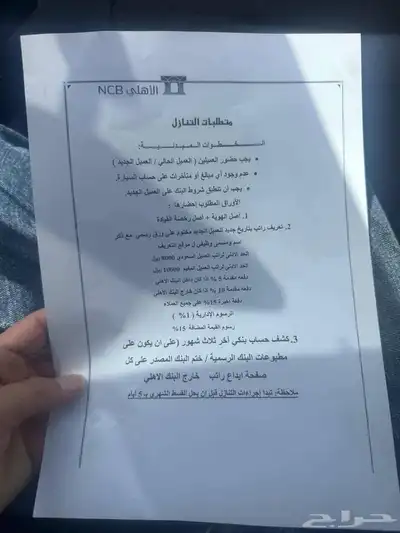 الأهلي NCB
متطلبات التنازل
الخطوات المبدئية:
• يجب حضور العميلين ( العميل الحالي / العميل الجديد )
• عدم وجود أي مبالغ أو متأخرات على حساب السيارة.
• يجب أن تنطبق شروط البنك على العميل الجديد.
الأوراق المطلوب إحضارها :
1. أصل الهوية + أصل رخصة القيادة
2. تعريف راتب بتاريخ جديد للعميل الجديد مختوم على ورق رسمي مع ذكر
اسم ومسمى وظيفي ان موقع التعريف
الحد الادنى لراتب العميل السعودي 5000 ريال
الحد الادنى لراتب العميل المقيم 10000 ريال
دفعة مقدمة 5 % اذا كان داخل البنك الاهلي
دفعة مقدمة 10 % اذا كان خارج البنك الاهلي
دفعة اخيرة 15% على جميع العملاء
الرسوم الإدارية ( 1% )
رسوم القيمة المضافة 15%
3. كشف حساب بنكي آخر ثلاث شهور (على ان يكون على
مطبوعات البنك الرسمية / ختم البنك المصدر على كل
صفحة ايداع راتب خارج البنك الاهلي
ملاحظة: تبدأ إجراءات التنازل قبل ان يحل القسط الشهري بـ 5 أيام
حراج